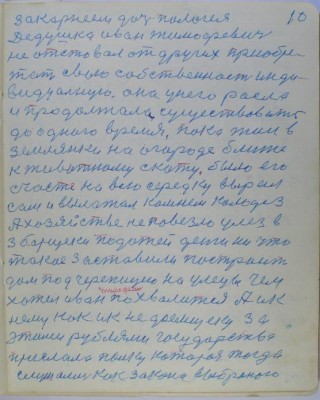 закарнеем доч пологея 10
Дедушка иван тимофевич
не отстовал от других приобре
тет свою собственност инди
видуалную. она унего расла
и продолжала существовать
до одного время, пока жил в
землянки на огороде ближе
к животному скоту. было его
счастя на всю середку вырел
сам и выложал камнем колодез
А хозяйстве не повезло улез в
збанцеки подожей денги ни что
такое заставили построить
дом под черепицую на улецы чем
хотел иван похвалится А ик
нему как ик недоемщику за
этими рублями государства
прислала пышку которая тогда
слушали как закона выбраного